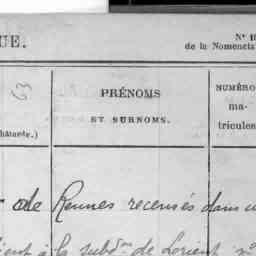 UE. Nº 1
de la Nomencla
63
PRÉNOMS
ET SURNOMS.
NUMÉRO
ma-
tricules
hâtante.)
de Rennes recensés dans
à la subdon de Lorient nº